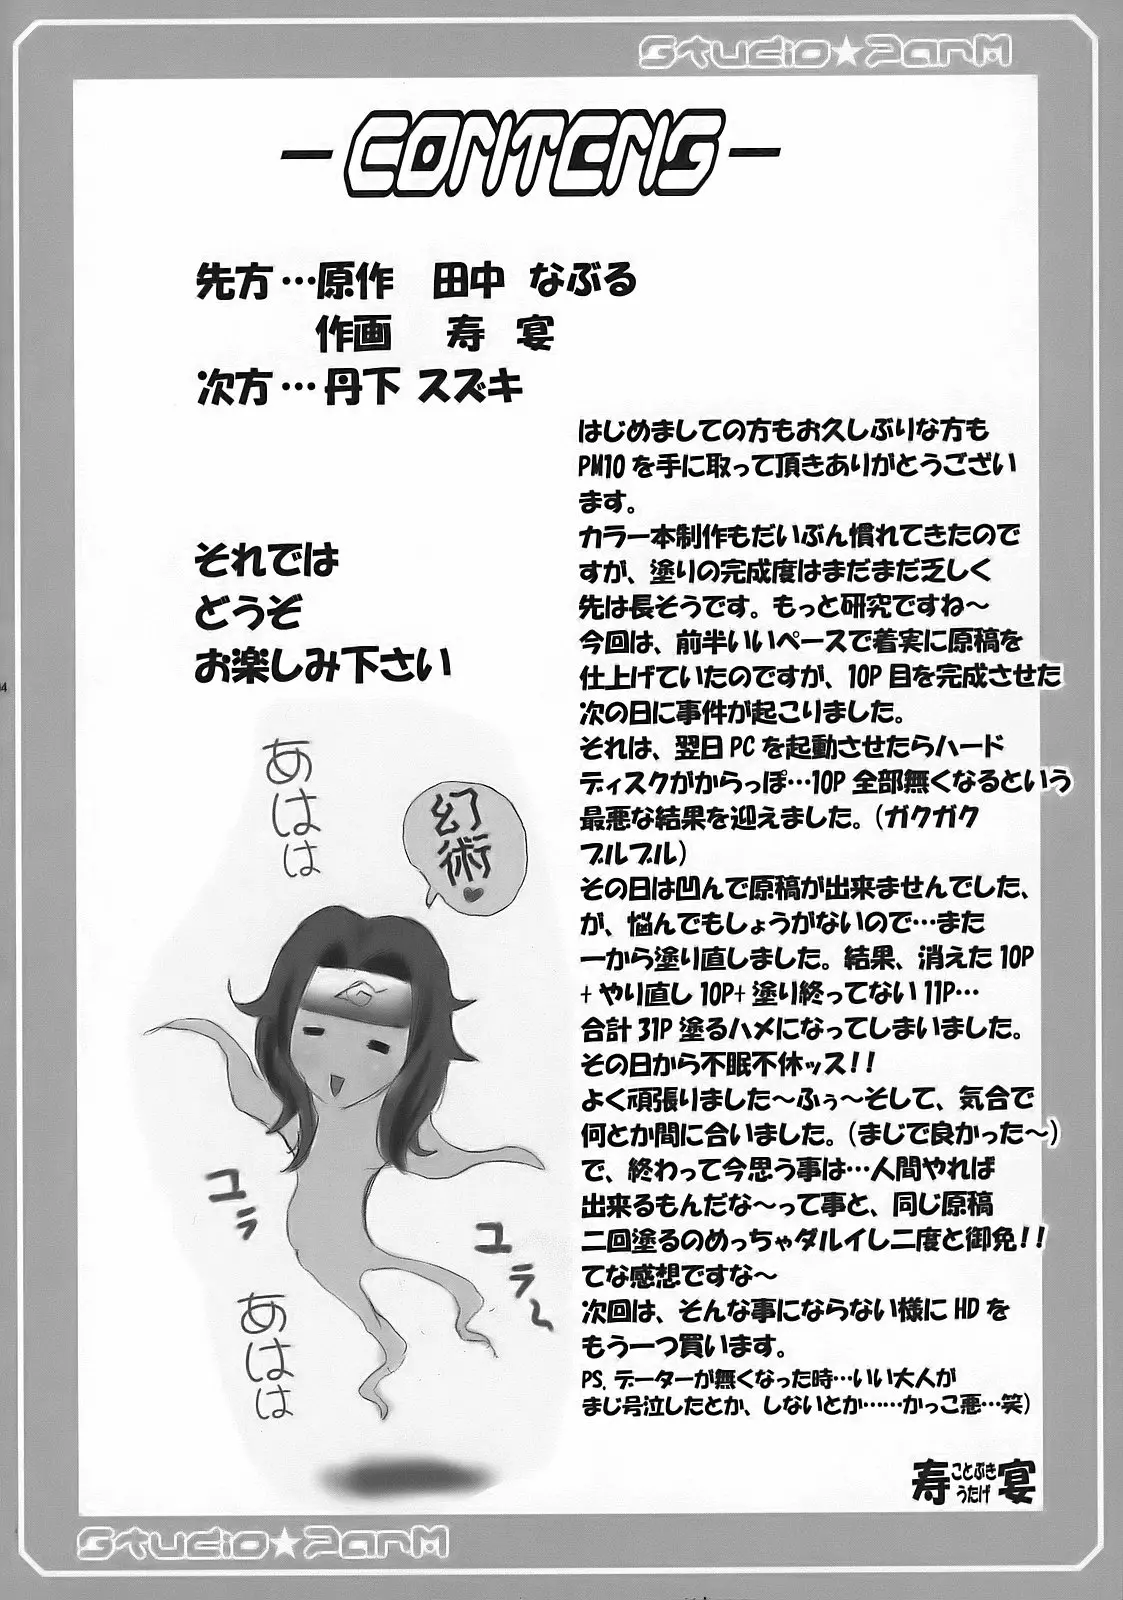 Studio★ParM
-CONTENS-
先方…原作 田中 なぶる
作画 寿 宴
次方…丹下 スズキ
それでは
どうぞ
お楽しみ下さい
はじめましての方もお久しぶりな方も
PM10を手に取って頂きありがとうござい
ます。
カラー本制作もだいぶん慣れてきたので
すが、塗りの完成度はまだまだ乏しく
先は長そうです。もっと研究ですね〜
今回は、前半いいペースで着実に原稿を
仕上げていたのですが、10P目を完成させた
次の日に事件が起こりました。
それは、翌日PCを起動させたらハード
ディスクがからっぽ…10P全部無くなるという
最悪な結果を迎えました。(ガクガク
ブルブル)
その日は凹んで原稿が出来ませんでした、
が、悩んでもしょうがないので…また
一から塗り直しました。結果、消えた10P
+やり直し10P+塗り終ってない11P…
合計31P塗るハメになってしまいました。
その日から不眠不休ッス!!
よく頑張りました〜ふぅ〜そして、気合で
何とか間に合いました。(まじで良かった〜)
で、終わって今思う事は…人間やれば
出来るもんだな〜って事と、同じ原稿
二回塗るのめっちゃダルイし二度と御免!!
てな感想ですな〜
次回は、そんな事にならない様にHDを
もう一つ買います。
PS.データーが無くなった時…いい大人が
まじ号泣したとか、しないとか……かっこ悪…笑)
寿 ことぶき うたげ 宴
あはは
幻術♥
ユラ
ユラ〜
あはは
04
Studio★ParM